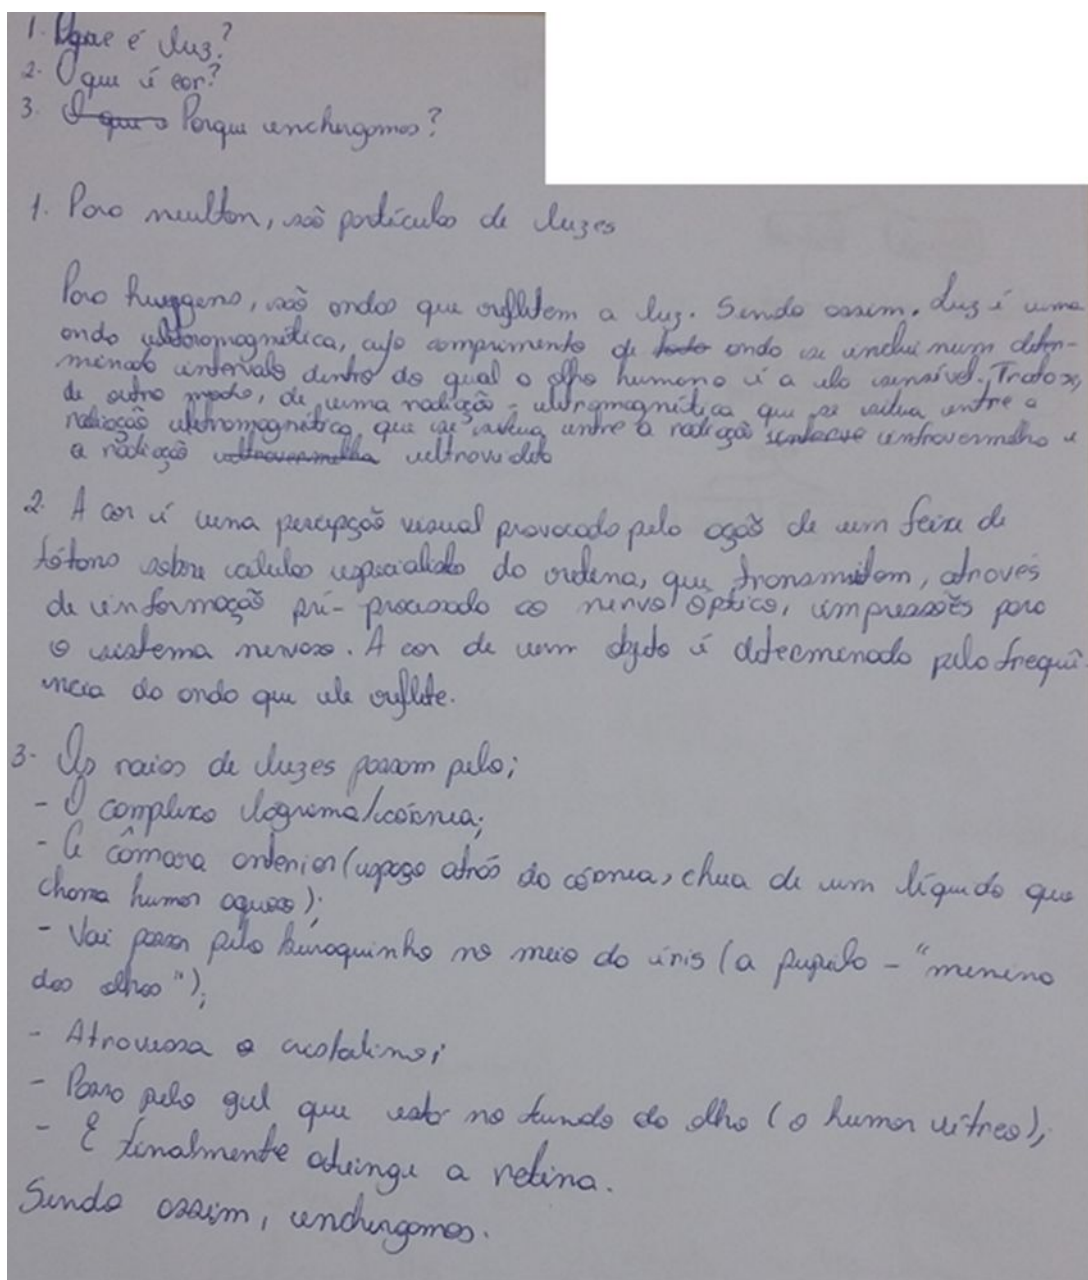 1. O que é luz?
2. O que é cor?
3. O que o Porque enchergamos?
1. Para neulton, são partículas de luzes
Para huyggens, são ondas que refletem a luz. Sendo assim, Luz é uma
onda eletromagnética, cujo comprimento de todo onda se inclui num deter-
minado intervalo dentro do qual o olho humano é a ela sensível. Trata-se,
de outro modo, de uma radiação eletromagnética que se situa entre a
radiação eletromagnética que se situa entre a radiação infravermelho e
a radiação ultravermelha ultravioleta
2. A cor é uma percepção visual provocada pela ação de um feixe de
fótons sobre células especializadas da retina, que transmitem, através
de informação pré-processada ao nervo óptico, impressões para
o sistema nervoso. A cor de um objeto é determinada pela frequê-
ncia da onda que ele reflete.
3- Os raios de luzes passam pelo;
- O complexo lágrima/córnea;
- A câmara anterior (espaço atrás da córnea, cheia de um líquido que
chama humor aquoso);
- Vai passar pelo buraquinho no meio da íris (a pupila - "menina
dos olhos");
- Atravessa o cristalino;
- Passa pelo gel que está no fundo do olho (o humor vítreo);
- E finalmente atinge a retina.
Sendo assim, enchergamos.